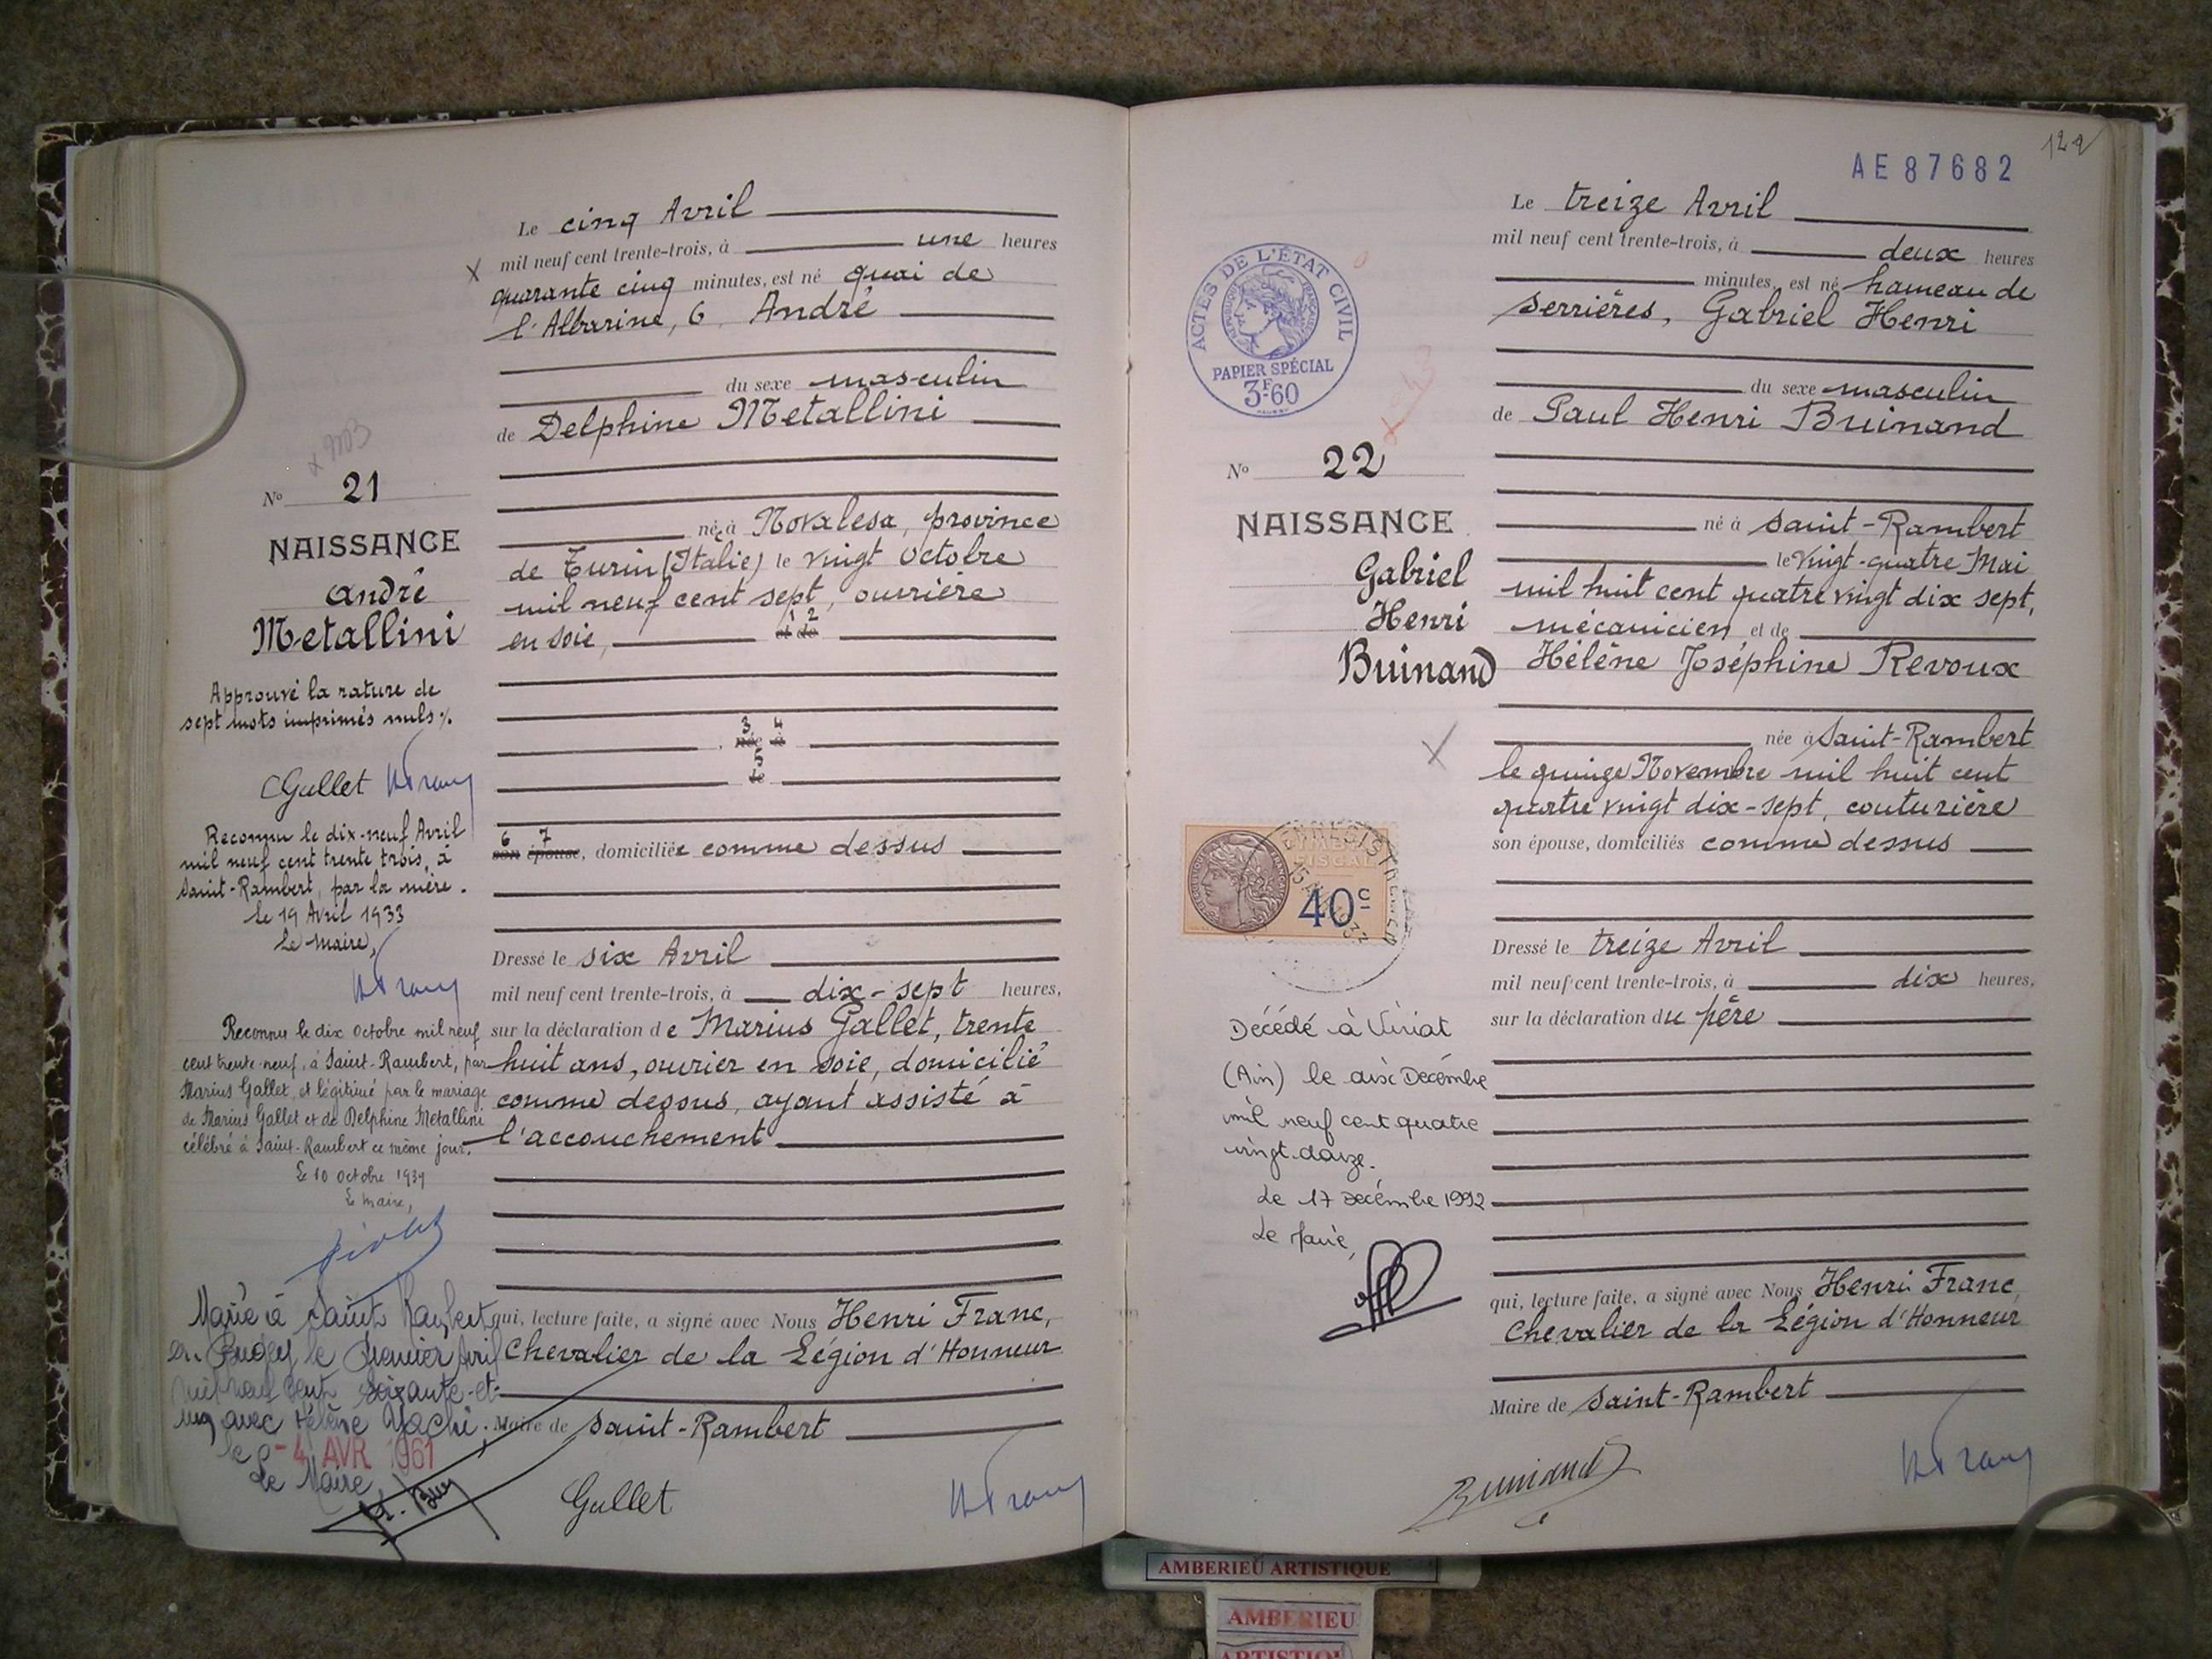 Le cinq Avril
mil neuf cent trente-trois, à une heures
quarante cinq minutes, est né quai de
l'Albarine, 6, André
du sexe masculin
de Delphine Metallini
née à Novalesa, province
de Turin (Italie) le vingt octobre
mil neuf cent sept, ouvrière
en soie, 1 2 et de
3 4 née à
5 le
6 7 son épouse, domiciliée comme dessus
Dressé le six Avril
mil neuf cent trente-trois, à dix-sept heures,
sur la déclaration de Marius Gallet, trente
huit ans, ouvrier en soie, domicilié
comme dessus, ayant assisté à
l'accouchement
qui, lecture faite, a signé avec Nous Henri Franc,
Chevalier de la Légion d'Honneur
Maire de Saint-Rambert
Gallet HFranc
X
N° 21
NAISSANCE
André
Metallini
Approuvé la rature de
sept mots imprimés nuls ./.
Gallet HFranc
Reconnu le dix-neuf Avril
mil neuf cent trente trois, à
Saint-Rambert, par la mère.
Le 19 Avril 1933
Le Maire,
HFranc
Reconnu le dix octobre mil neuf
cent trente-neuf, à Saint-Rambert, par
Marius Gallet, et légitimé par le mariage
de Marius Gallet et de Delphine Metallini
célébré à Saint-Rambert ce même jour.
Le 10 octobre 1939
Le Maire,
Marié à Saint Rambert
en Bugey le premier Avril
mil neuf cent soixante-et-
un avec Hélène
le -4 AVR 1961
Le Maire
122
AE 87682
Le treize Avril
mil neuf cent trente-trois, à deux heures
minutes, est né hameau de
Serrières, Gabriel Henri
du sexe masculin
de Paul Henri Buinand
né à Saint-Rambert
le vingt-quatre Mai
mil huit cent quatre vingt dix sept,
mécanicien et de
Hélène Joséphine Revoux
née à Saint-Rambert
le quinze Novembre mil huit cent
quatre vingt dix-sept, couturière
son épouse, domiciliés comme dessus
Dressé le treize Avril
mil neuf cent trente-trois, à dix heures,
sur la déclaration du père
qui, lecture faite, a signé avec Nous Henri Franc,
Chevalier de la Légion d'Honneur
Maire de Saint-Rambert
Buinand HFranc
ACTES DE L'ÉTAT CIVIL
RÉPUBLIQUE FRANÇAISE
PAPIER SPÉCIAL
3F.60
N° 22
NAISSANCE
Gabriel
Henri
Buinand
X
TIMBRE
FISCAL
40c
Décédé à Viriat
(Ain) le dix Décembre
mil neuf cent quatre
vingt douze.
Le 17 Décembre 1992
Le Maire,
AMBERIEU ARTISTIQUE
AMBERIEU
ARTISTIQ